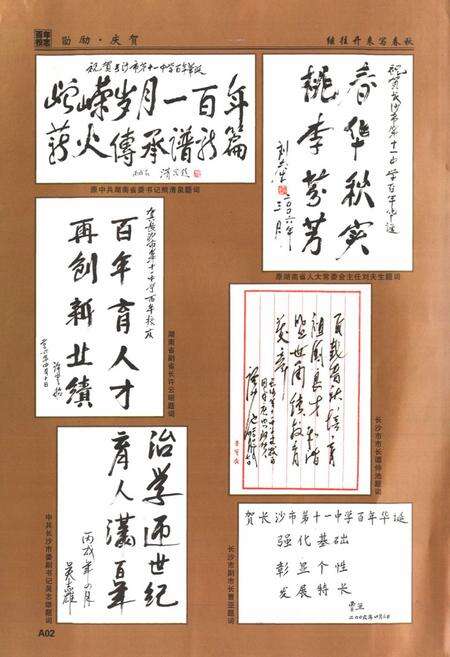 百年校志
勋励·庆贺
继往开来写春秋
祝贺长沙市第十一中学百年华诞
峥嵘岁月一百年
薪火传承谱新篇
原中共湖南省委书记熊清泉题词
祝贺长沙市第十一中学百年华诞
春华秋实
桃李芬芳
刘夫生
二〇〇六年
三月
原湖南省人大常委会主任刘夫生题词
贺长沙市第十一中学百年校庆
百年育人才
再创新业绩
湖南省副省长许云昭题词
百载春秋培育
祖国良才
长沙市市长谭仲池题词
治学逾世纪
育人满百年
丙戌年四月
吴志雄
中共长沙市委副书记吴志雄题词
贺长沙市第十一中学百年华诞
强化基础
彰显个性
发展特长
曹亚
二〇〇六年四月二日
长沙市副市长曹亚题词
A02